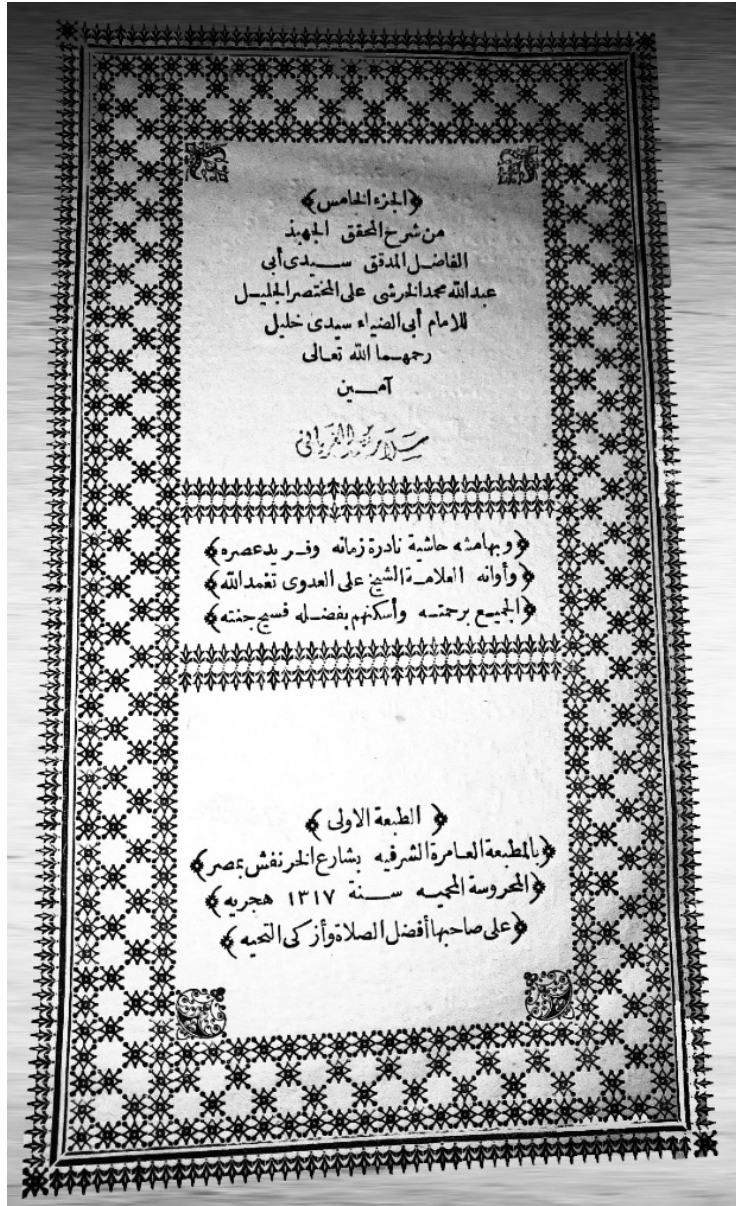 ﴿الجزء الخامس﴾
من شرح المحقق الجهبذ
الفاضل المدقق ســيدى أبى
عبد الله محمد الخرشى على المختصر الجليـل
للامام أبى الضياء سيدى خليل
رحمهـما الله تعـالى
آمــين
﴿وبهامشه حاشية نادرة زمانه وفـريد عصره﴾
﴿وأوانه العلامـة الشيخ على العدوى تغمد الله﴾
﴿الجميـع برحمتـه وأسكنهم بفضـله فسيح جنته﴾
﴿الطبعة الاولى﴾
﴿بالمطبعة العـامرة الشرفيه بشارع الخرنفش بمصر﴾
﴿المحروسة المحميـه ســنة ١٣١٧ هجريه﴾
﴿على صاحبها أفضل الصلاة وأزكى التحيه﴾